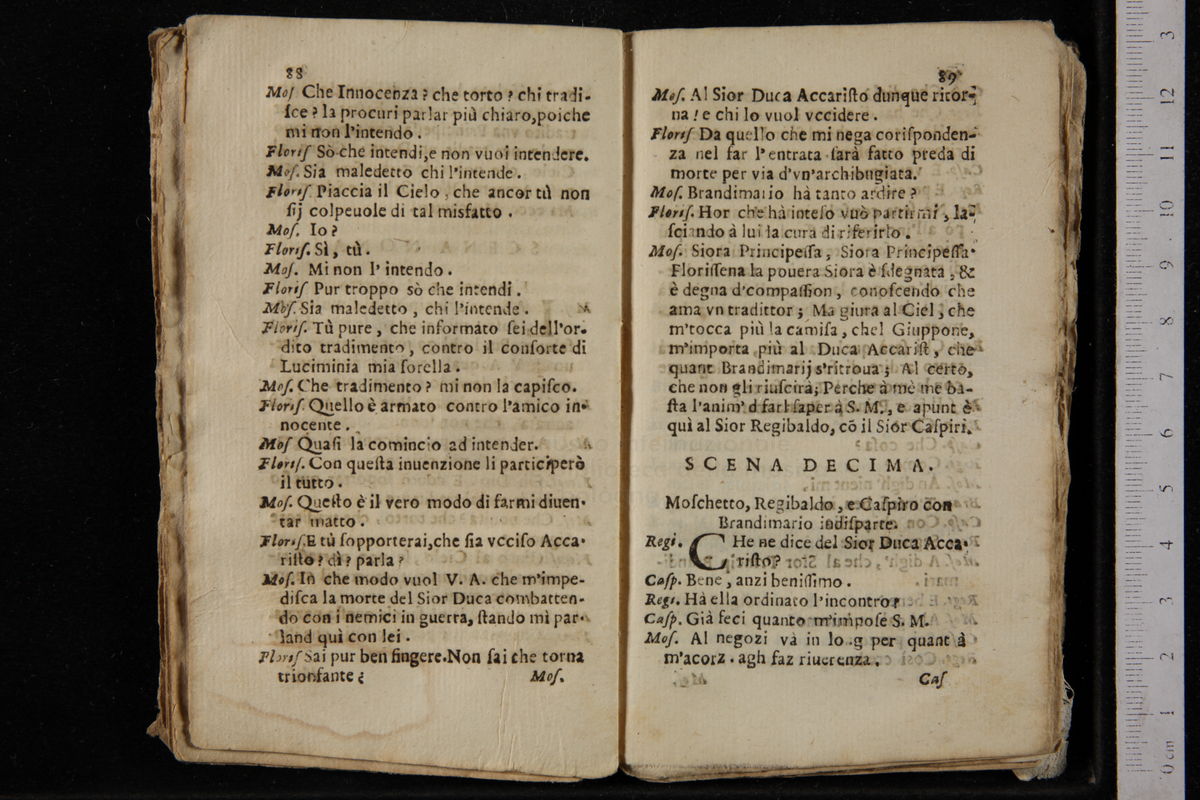 88
Moſ Che Innocenza? che torto? chi tradi-
ſce? la procuri parlar più chiaro,poiche
mi non l'intendo.
Floriſ Sò che intendi,e non vuoi intendere.
Moſ. Sia maledetto chi l'intende.
Floriſ Piaccia il Cielo, che ancor tù non
ſij colpeuole di tal misfatto.
Moſ. Io?
Floriſ. Sì, tù.
Moſ. Mi non l'intendo.
Floriſ Pur troppo sò che intendi.
Moſ. Sia maledetto, chi l'intende.
Floriſ. Tù pure, che informato ſei dell'or-
dito tradimento, contro il conſorte di
Luciminia mia ſorella.
Moſ. Che tradimento? mi non la capiſco.
Floriſ. Quello è armato contro l'amico in-
nocente.
Moſ Quaſi la comincio ad intender.
Floriſ. Con queſta inuenzione li participerò
il tutto.
Moſ. Queſto è il vero modo di farmi diuen-
tar matto.
Floriſ. E tù ſopporterai,che ſia vcciſo Acca-
riſto? dì? parla?
Moſ. In che modo vuol V. A. che m'impe-
diſca la morte del Sior Duca combatten-
do con i nemici in guerra, ſtando mì par-
land quì con lei.
Floriſ Sai pur ben fingere.Non ſai che torna
trionfante?
Moſ.
89
Moſ. Al Sior Duca Accariſto dunque ritor-
na! e chi lo vuol vccidere.
Floriſ Da quello che mi nega coriſponden-
za nel far l'entrata ſarà fatto preda di
morte per via d'vn'archibugiata.
Moſ. Brandimario hà tanto ardire?
Floriſ. Hor che hà inteſo vuò partirmi, la-
ſciando à lui la cura di riferirlo.
Moſ. Siora Principeſſa, Siora Principeſſa
Floriſſena la pouera Siora è ſdegnata, &
è degna d'compaſſion, conoſcendo che
ama vn tradittor; Ma giura al Ciel, che
m'tocca più la camiſa, chel Giuppone,
m'importa più al Duca Accariſt, che
quant Brandimarij s'ritroua; Al certo,
che non gli riuſcirà; Perche à mè me ba-
ſta l'anim' d farl ſaper à S. M., e apunt è
quì al Sior Regibaldo, cō il Sior Caſpiri.
SCENA DECIMA.
Moſchetto, Regibaldo, e Caſpiro con
Brandimario indiſparte.
Regi. CHe ne dice del Sior Duca Acca-
riſto?
Caſp. Bene, anzi beniſſimo.
Regi. Hà ella ordinato l'incontro?
Caſp. Già feci quanto m'impoſe S. M.
Moſ. Al negozi và in lo.g per quant à
m'acorz. agh faz riuerenza.
Caſ